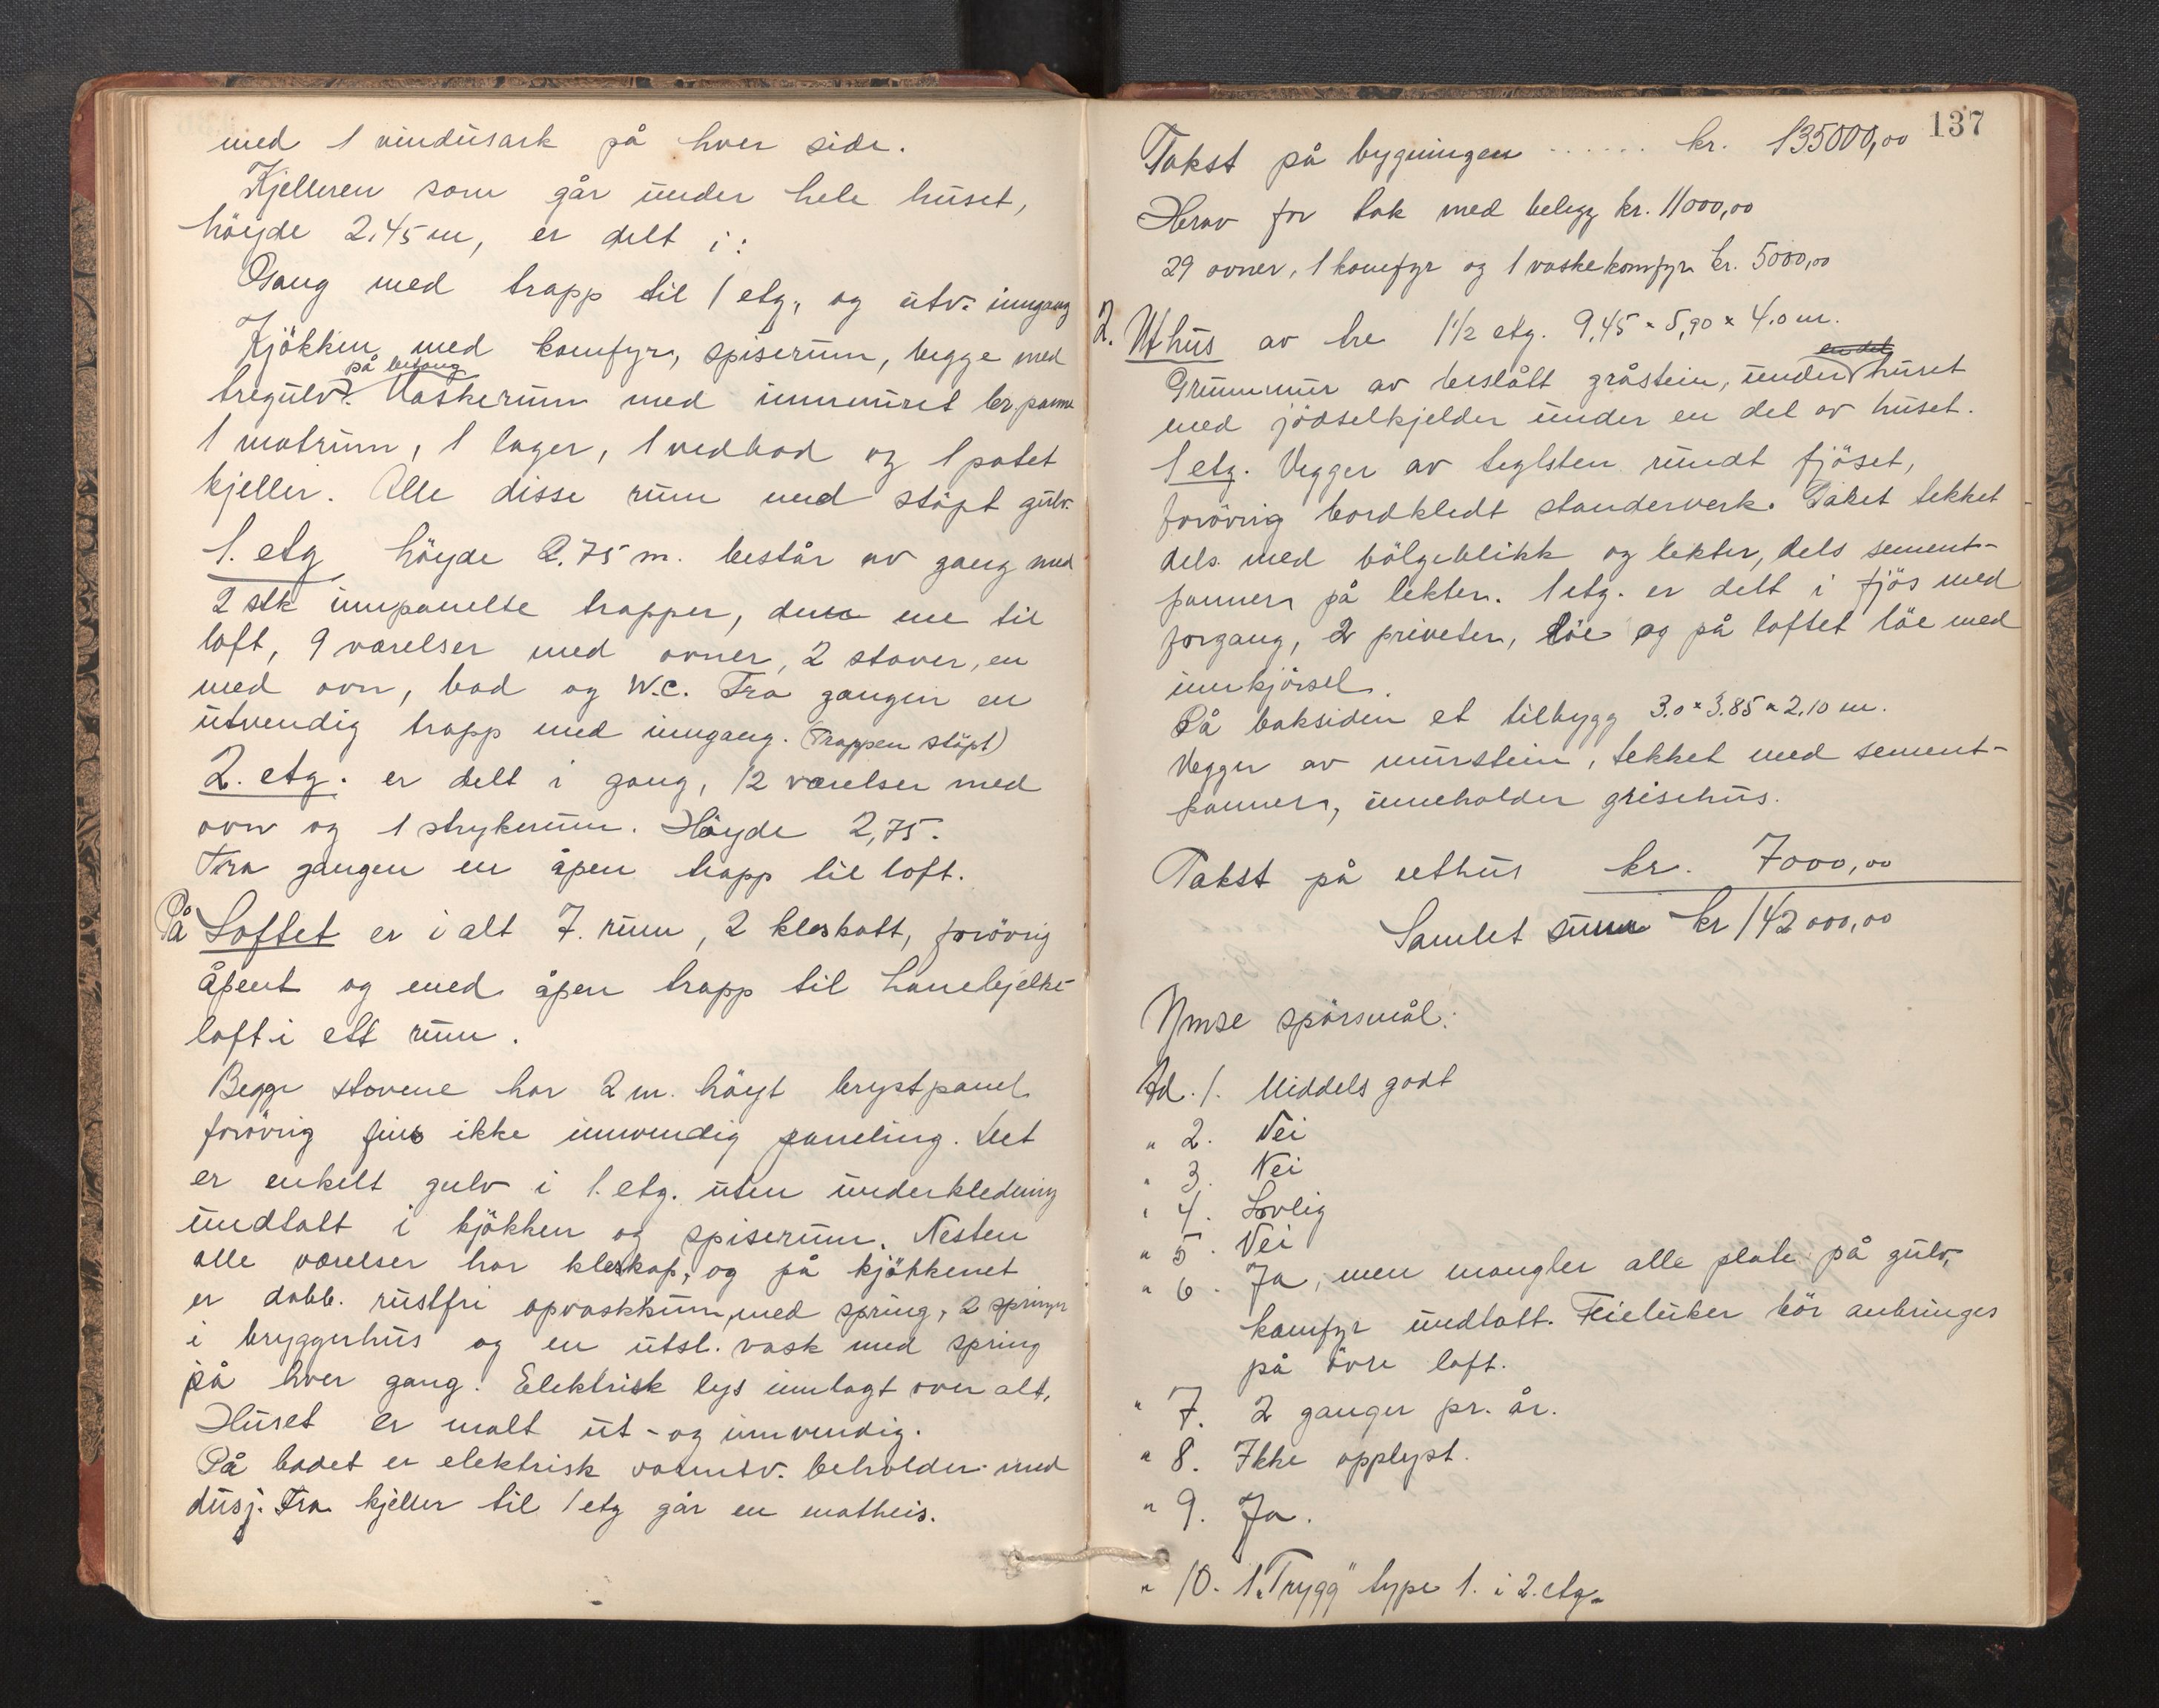 med 1 vindusark på hver side.
Kjelleren som går under hele huset,
höyde 2,45 m, er delt i:
Gang med trapp til 1 etg, og utv. inngang
Kjökken med komfyr, spiserum, begge med
på betong
tregulv. Vaskerum med innmuret br.panne
1 matrum, 1 lager, 1 vedbod og 1 potet
kjeller. Alle disse rum med stöpt gulv.
1. etg höyde 2,75 m. består av gang med
2 stk innpanelte trapper, den ene til
loft, 9 værelser med ovner, 2 stover, en
med ovn, bad og W.C. Fra gangen en
utvendig trapp med inngang. (Trappen stöpt)
2. etg. er delt i gang, 12 værelser med
ovn og 1 strykerum. Höyde 2,75.
Fra gangen en åpen trapp til loft.
På Loftet er i alt 7. rum, 2 kleskott, forövrig
åpent og med åpen trapp til hanebjelke-
loft i ett rum.
Begge stovene har 2 m. höyt brystpanel
forövrig fins ikke innvendig paneling. Det
er enkelt gulv i 1. etg. uten underkledning
undtatt i kjökken og spiserum. Nesten
alle værelser har kleskap, og på kjökkenet
er dobb. rustfri opvaskkum, med spring, 2 springer
i bryggerhus og en utsl. vask med spring
på hver gang. Elektrisk lys innlagt over alt.
Huset er malt ut- og innvendig.
På badet er elektrisk varmtv. beholder med
dusj. Fra kjeller til 1 etg går en matheis.
137
Takst på bygningen ...... kr. 135000,00
Herav for tak med belegg kr. 11000,00
29 ovner, 1 komfyr og 1 vaskekomfyr kr. 5000,00
2. Uthus av tre 1½ etg. 9,45 × 5,90 × 4.0 m.
en del
Grunnmur av beslått gråstein, under huset
med jödselkjelder under en del av huset.
1 etg. Vegger av teglsten rundt fjöset,
forövrig bordkledt standerverk. Taket tekket
dels med bölgeblikk og lekter, dels sement-
panner på lekter. 1 etg. er delt i fjös med
forgang, 2 priveter, löe og på loftet löe med
innkjörsel.
På baksiden et tilbygg 3.0 × 3.85 × 2.10 m.
Vegger av murstein, tekket med sement-
panner, inneholder grisehus.
Takst på uthus kr. 7000,00
Samlet sum kr 142000,00
Ymse spörsmål:
Ad. 1. Middels godt
" 2. Nei
" 3. Nei
" 4. Lovlig
" 5. Nei
" 6. Ja, men mangler alle plate på gulv,
komfyr undtatt. Feieluker bör anbringes
på övre loft.
" 7. 2 ganger pr. år.
" 8. Ikke opplyst.
" 9. Ja.
" 10. 1 "Trygg" type 1. i 2. etg.